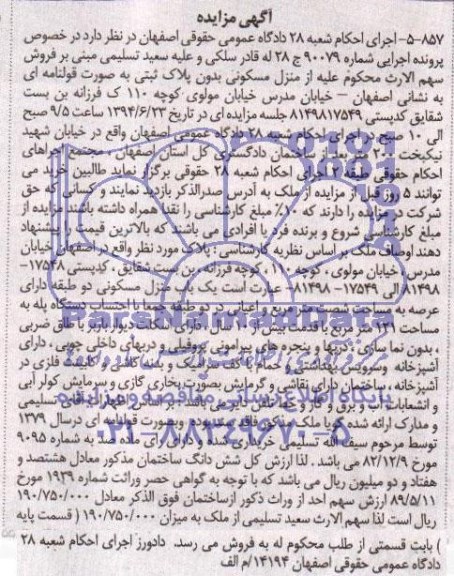 آگهی مزایده
۸۵۷-۵- اجرای احکام شعبه ۲۸ دادگاه عمومی حقوقی اصفهان در نظر دارد در خصوص
پرونده اجرایی شماره ۹۰۰۷۹ ج ۲۸ له قادر سلکی و علیه سعید تسلیمی مبنی بر فروش
سهم الارث محکوم علیه از منزل مسکونی بدون پلاک ثبتی به صورت قولنامه ای
به نشانی اصفهان – خیابان مدرس خیابان مولوی کوچه ۱۱۰ ک فرزانه بن بست
شقایق کدپستی ۸۱۴۹۸۱۷۵۴۹ جلسه مزایده ای در تاریخ ۱۳۹۴/۶/۲۳ ساعت ۹/۵ صبح
الی ۱۰ صبح در اجرای احکام شعبه ۲۸ دادگاه عمومی اصفهان واقع در خیابان شهید
نیکبخت ۲۰۰ متر بعد از ساختمان دادگستری کل استان اصفهان ، مجتمع اجراهای
احکام حقوقی طبقه اجرای احکام شعبه ۲۸ حقوقی برگزار نماید طالبین خرید می
توانند ۵ روز قبل از مزایده از ملک به آدرس صدرالذکر بازدید نمایند و کسانی که حق
شرکت در مزایده را دارند که ۱۰٪ مبلغ کارشناسی را نقدا همراه داشته باشند مزایده از
مبلغ کارشناسی شروع و برنده فرد یا افرادی می باشند که بالاترین قیمت را پیشنهاد
دهند اوصاف ملک بر اساس نظریه کارشناسی : پلاک مورد نظر واقع در اصفهان خیابان
مدرس ، خیابان مولوی ، کوچه ۱۱۰ ، کوچه فرزانه ، بن بست شقایق ، کدپستی ۱۷۵۴۸-
۸۱۴۹۸ الی ۱۷۵۴۹-۸۱۴۹۸ عبارت است یک باب منزل مسکونی دو طبقه دارای
عرصه به مساحت شصت متر مربع و اعیانی در دو طبقه جمعا با احتساب دستگاه پله به
مساحت ۱۳۱ متر مربع با قدمت بیش از سال ، دارای اسکلت دیوار باربر با طاق ضربی
، بدون نما سازی ، دربها و پنجره های پیرامونی پروفیلی و دربهای داخلی چوبی ، دارای
آشپزخانه وسرویس بهداشتی و حمام با کف سرامیک و بدنه کاشی و کابینت فلزی در
آشپزخانه ، ساختمان دارای نقاشی و گرمایش بصورت بخاری گازی و سرمایش کولر آبی
و انشعابات آب و برق و گاز و فاضلاب دایر می باشد. بر اساس اظهار آقای تسلیمی
و مدارک ارائه شده گویا ملک مذکور فاقد سند رسمی وبصورت قولنامه ای درسال ۱۳۷۹
توسط مرحوم سیف اله تسلیمی خریداری گردیده و دارای حصر به شماره ۹۰۹۵
مورخ ۸۲/۱۲/۹ می باشد . لذا ارزش کل شش دانگ ساختمان مذکور معادل هشتصد و
هفتاد و دو میلیون ریال می باشد که با توجه به گواهی حصر وراثت شماره ۱۹۳۹ مورخ
۸۹/۵/۱۱ ارزش سهم احد از وراث ذکور ازساختمان فوق الذکر معادل ۱۹۰/۷۵۰/۰۰۰
ریال است لذا سهم الارث سعید تسلیمی از ملک به میزان ۱۹۰/۷۵۰/۰۰۰ ( قسمت پایه
) بابت قسمتی از طلب محکوم له به فروش می رسد. دادورز اجرای احکام شعبه ۲۸
دادگاه عمومی حقوقی اصفهان ۱۴۱۹۴/م الف
ParsNamadData
پایگاه اطلاع رسانی مناقصه و مزایده
۰۲۱-۸۸۳۴۹۶۷۰-۵